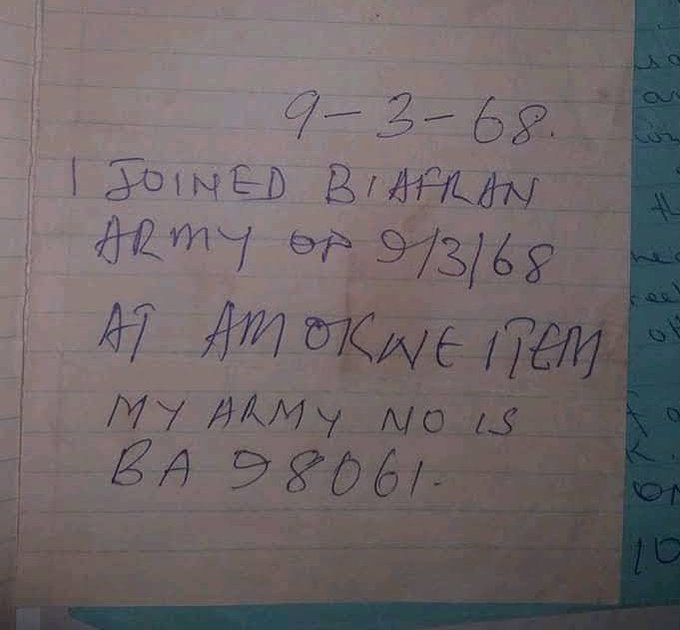 9-3-68.
I JOINED BIAFRAN
ARMY OF 9/3/68
AT AMOKWE ITEM
MY ARMY NO IS
BA 98061.